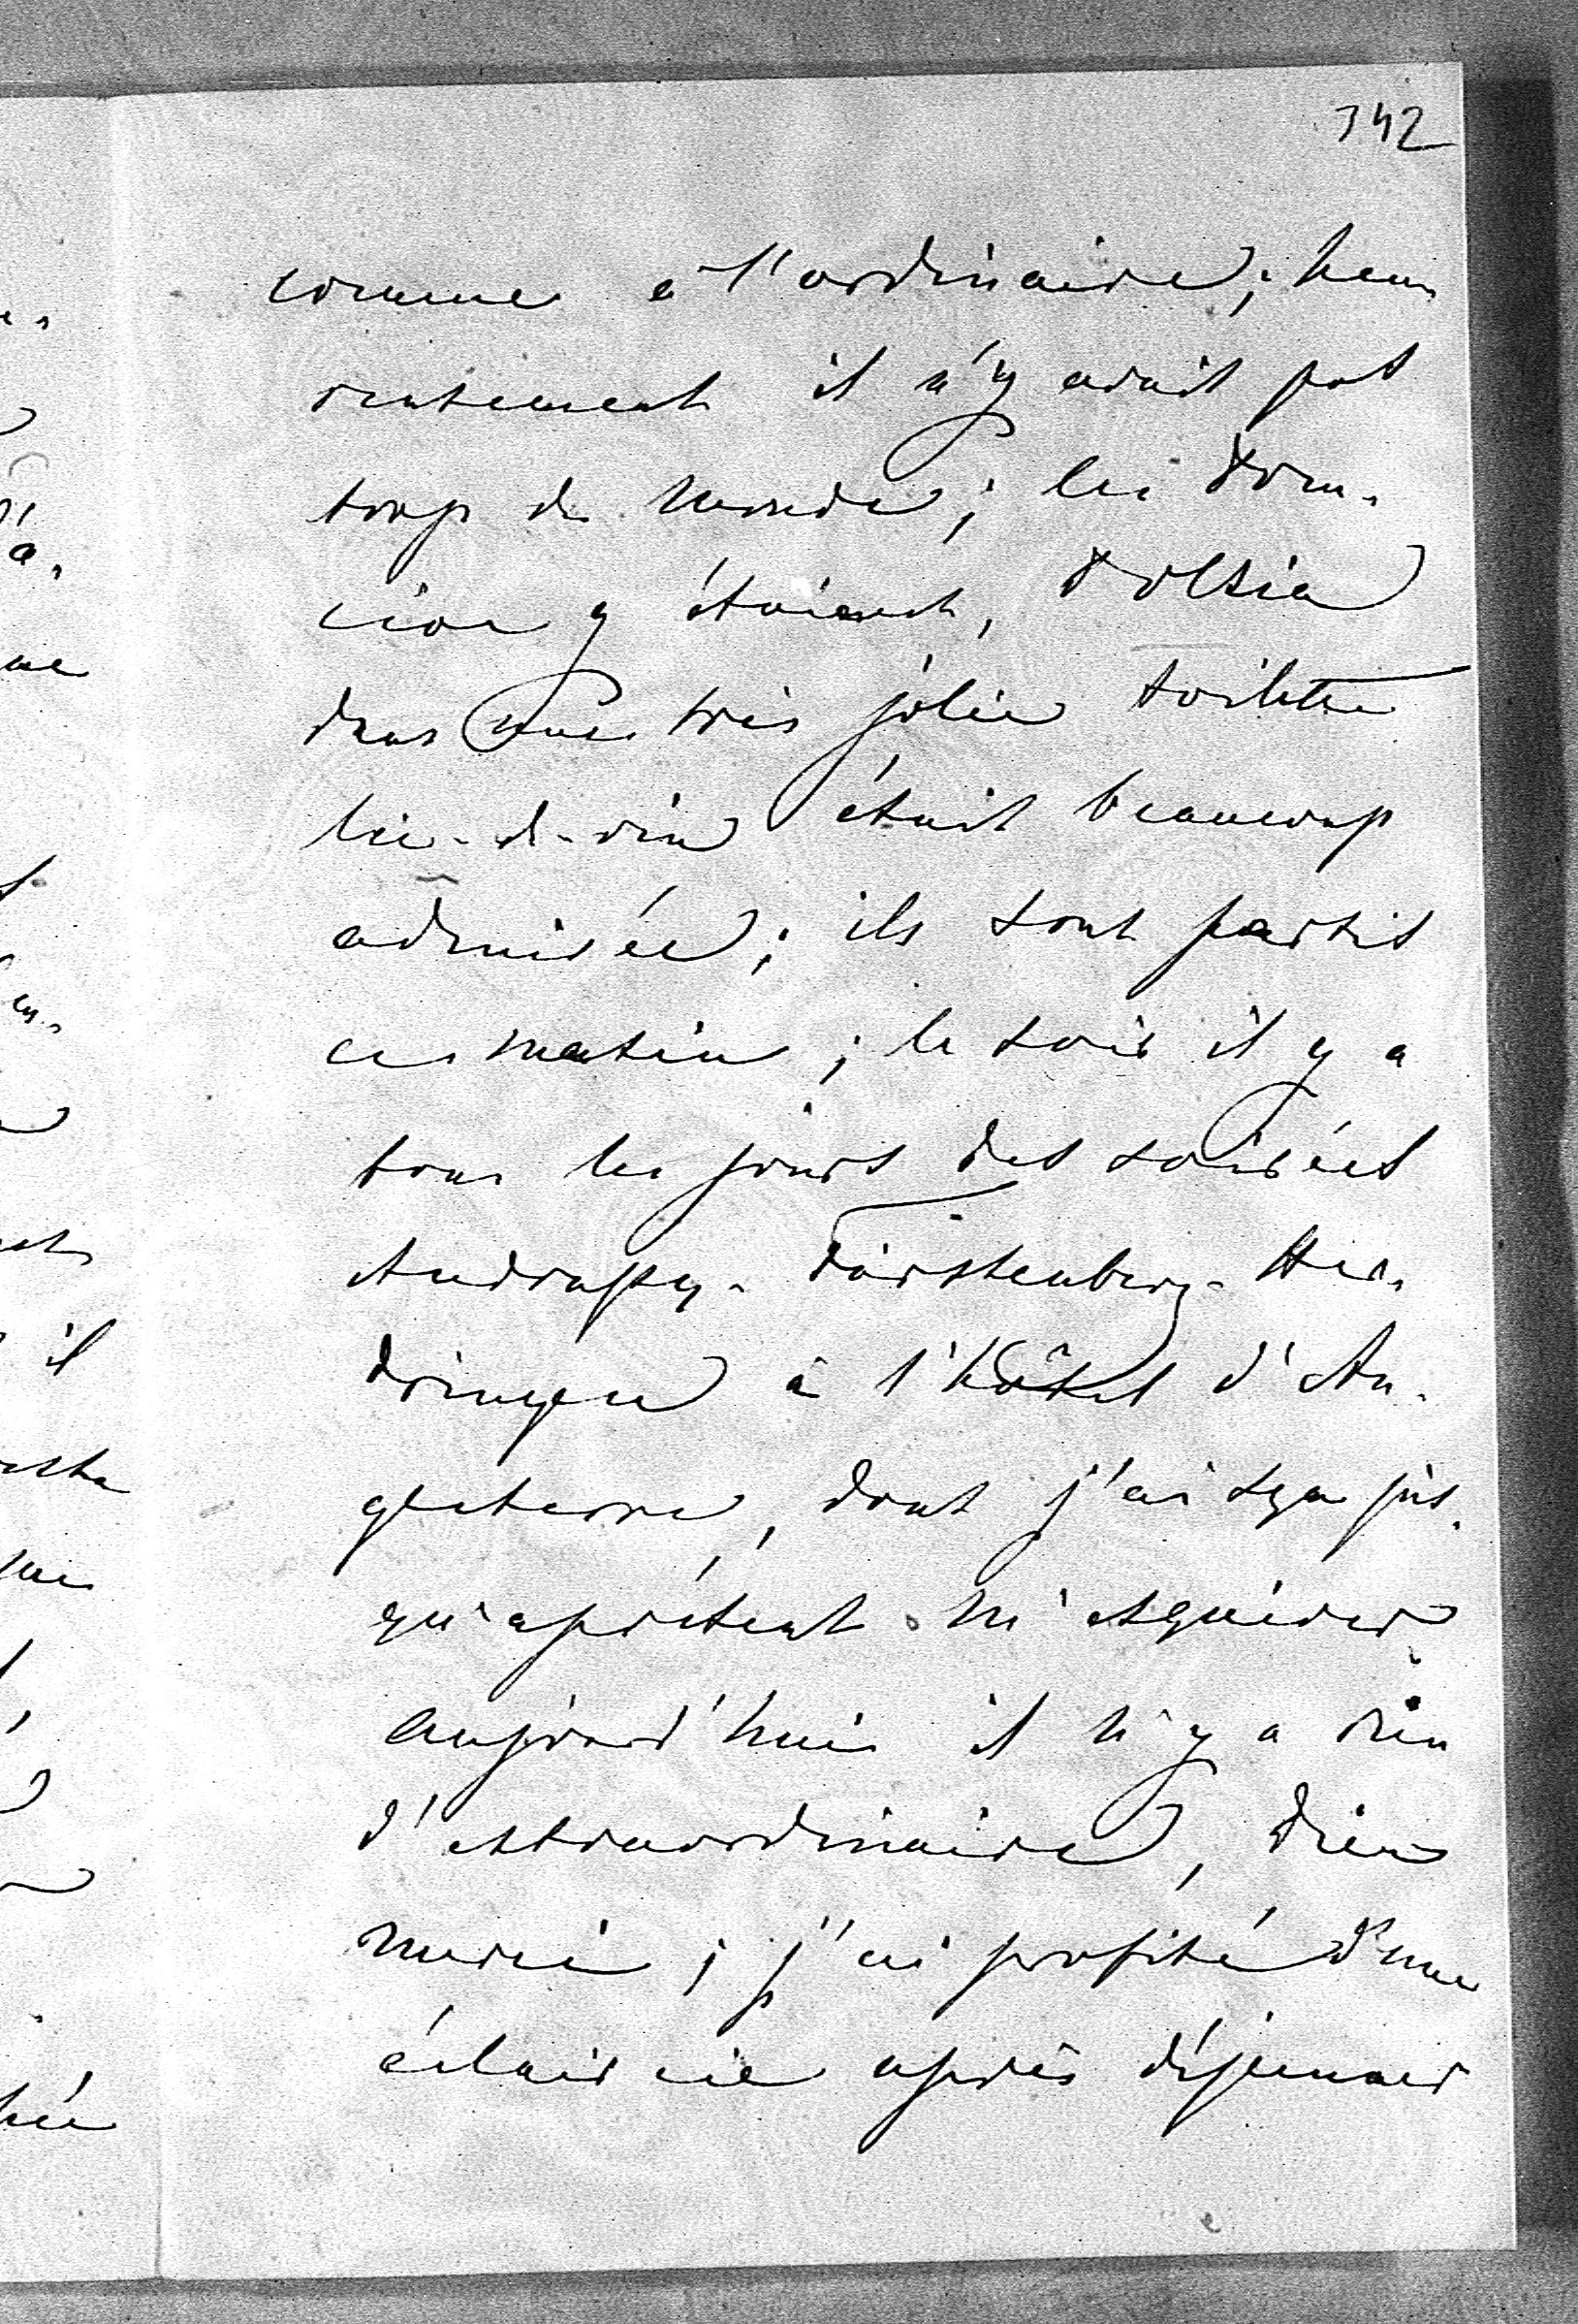 342
comme à l'ordinaire; heu-
reusement il n'y avait pas
trop de monde; les Dom-
y étaient,
dans une très jolie toilette
lie-d-vin était beaucoup
admirée; ils sont partis
ce matin; le soir il y a
tous les jours des soirées
Andrassy-Fürstenberg-Her-
dringen à l'hôtel d'An-
gleterre, dont j'ai sçu jus-
qu'aprésent m'esquiver
aujourd'hui il n'y a rien
d'extraordinaire, Dieu
merci; j'ai profité d'une
éclaircie après déjeuner